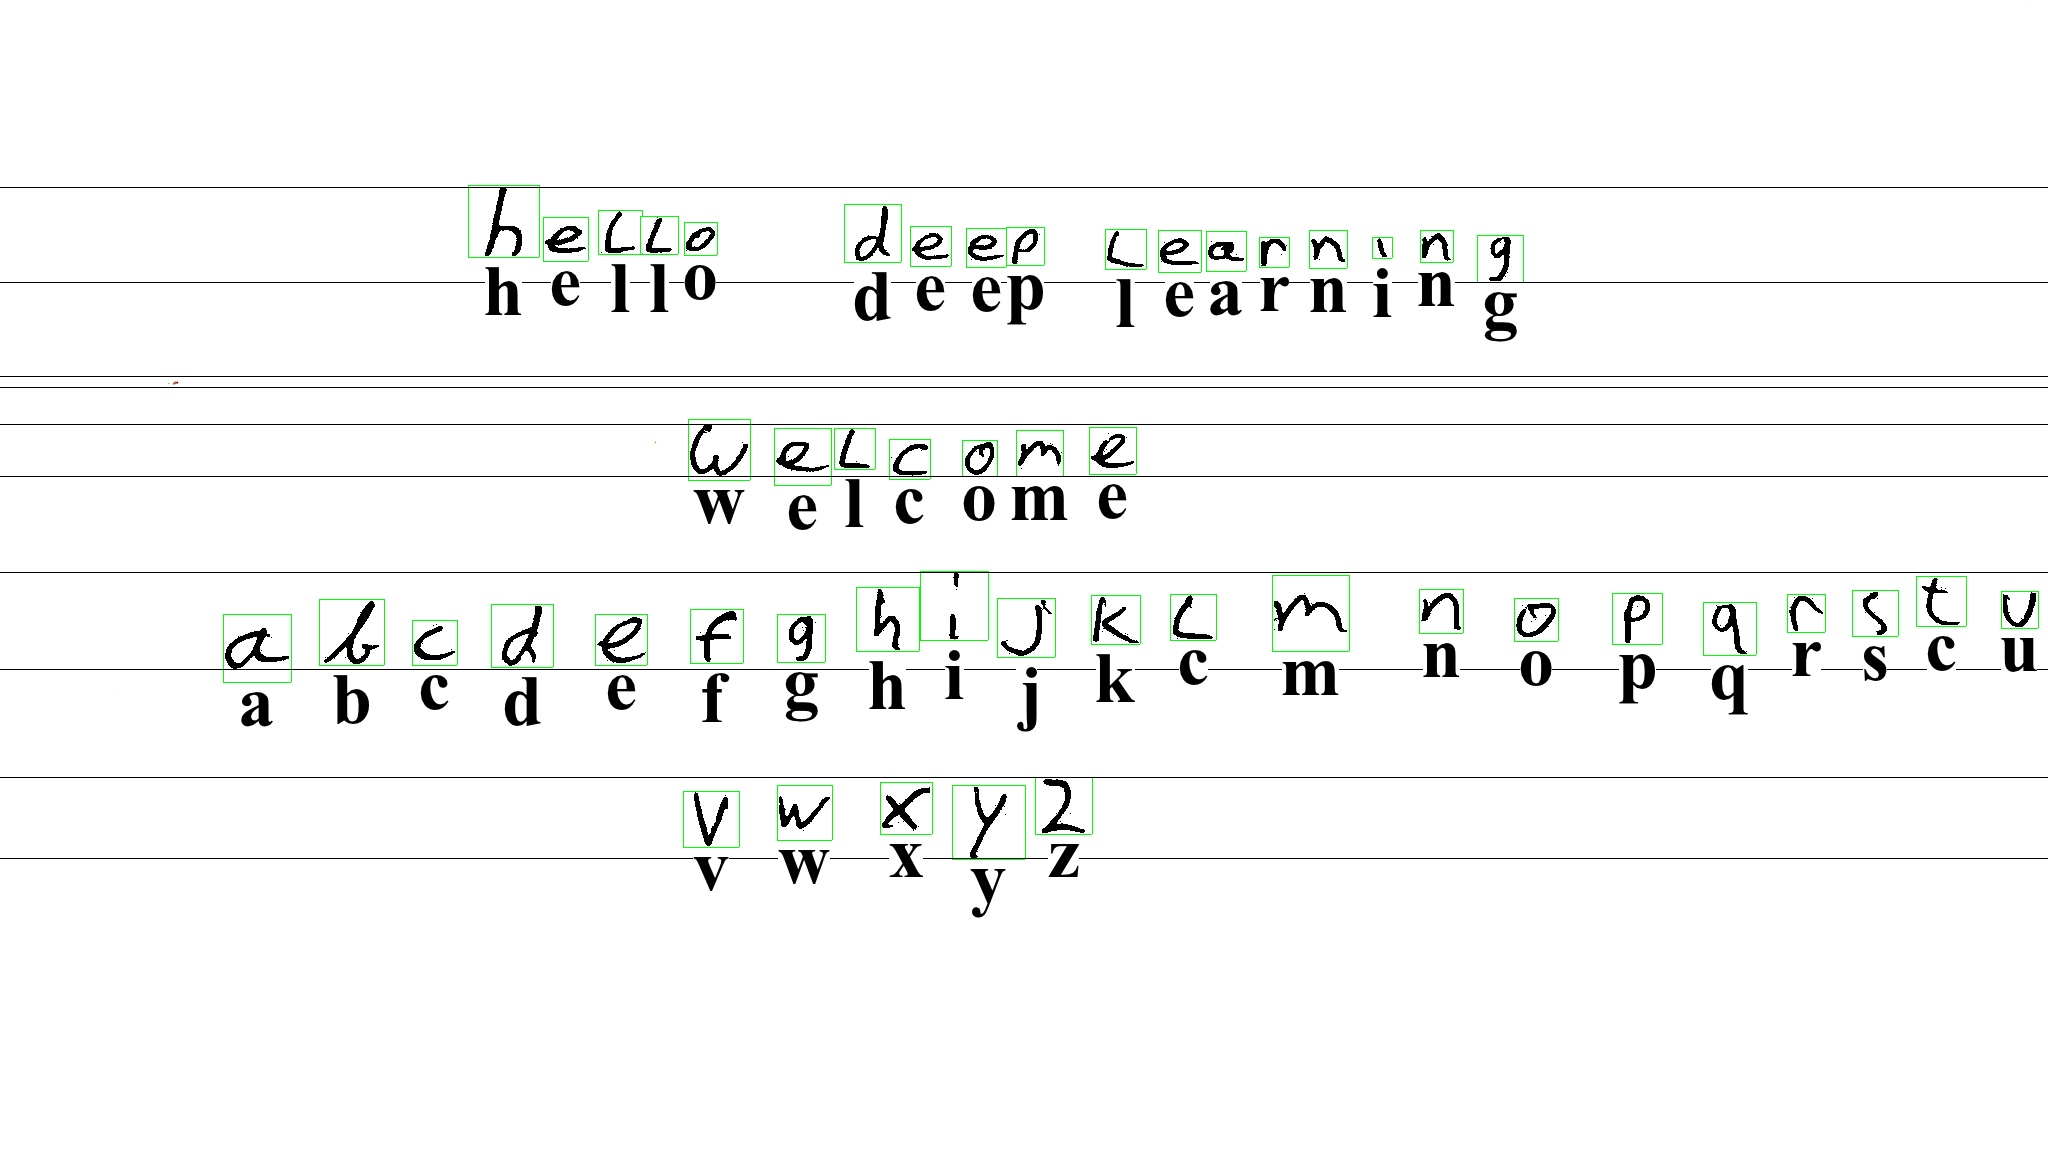 hello deep learning
hello deep learning
welcome
welcome
a b c d e f g h i j k L m n o p q r s t u
a b c d e f g h i j k c m n o p q r s c u
v w x y z
v w x y z